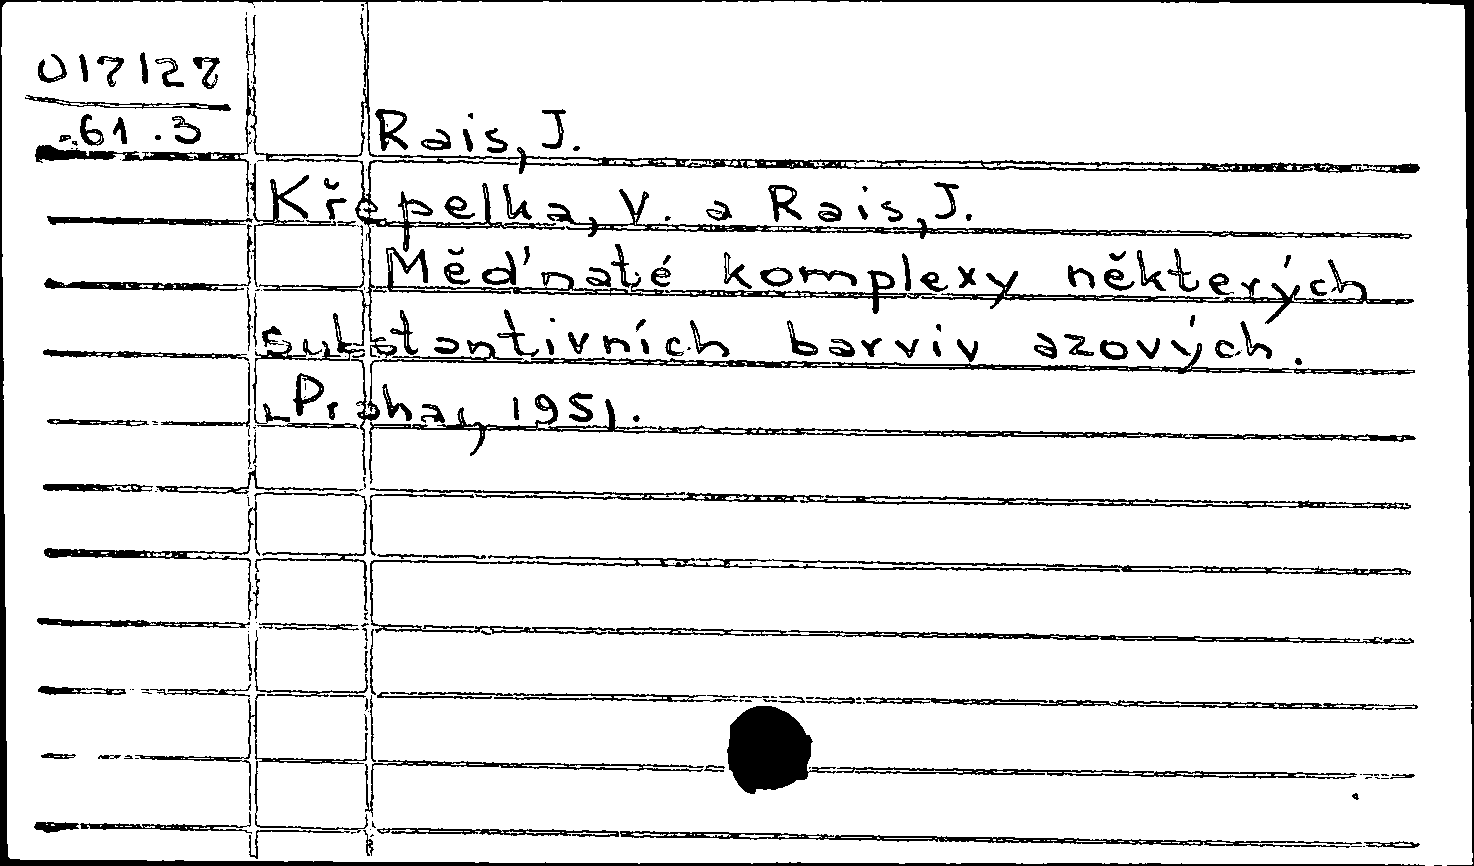 017127
.61.3
Rais, J.
Křepelka, V. a Rais, J.
Měďnaté komplexy některých
substantivních barviv azových.
Praha, 1951.